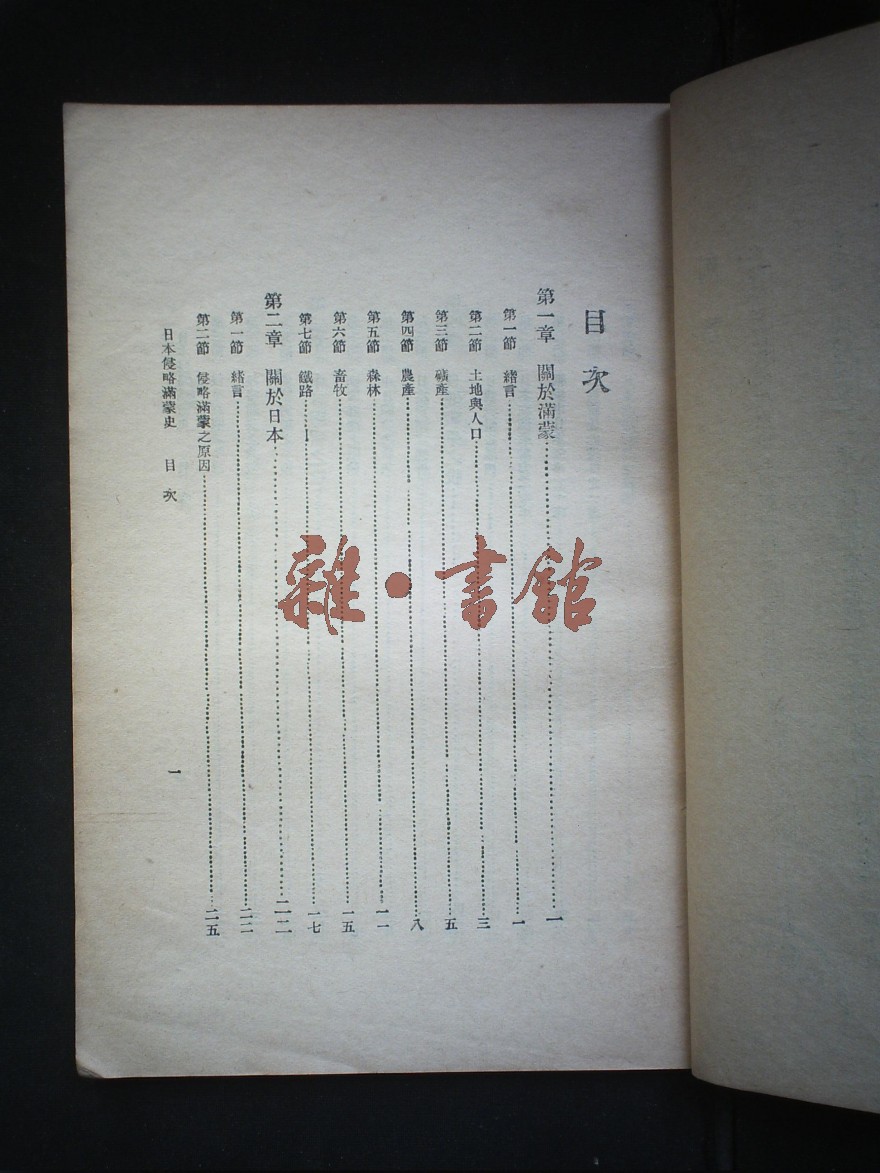 目次
第一章 關於滿蒙……一
第一節 緒言……一
第二節 土地與人口……三
第三節 礦產……五
第四節 農產……八
第五節 森林……一一
第六節 畜牧……一五
第七節 鐵路……一七
第二章 關於日本……二二
第一節 緒言……二二
第二節 侵略滿蒙之原因……二五
日本侵略滿蒙史 目次
一
雜·書館